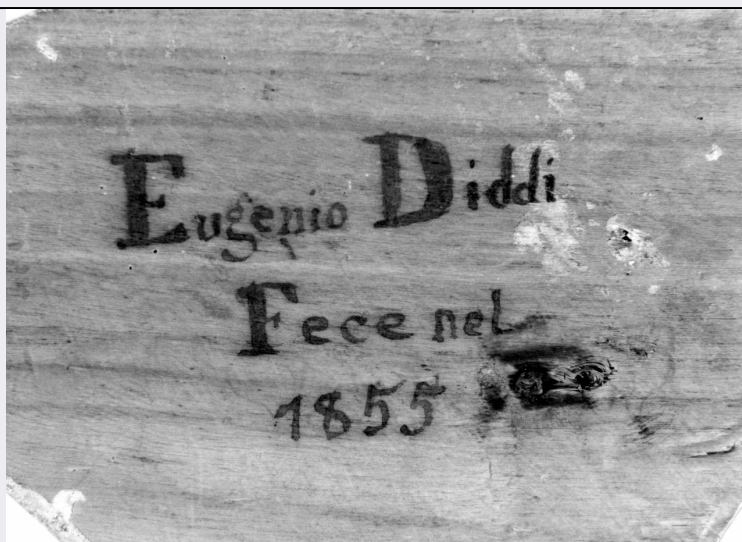 Eugenio Diddi
Fece nel
1855